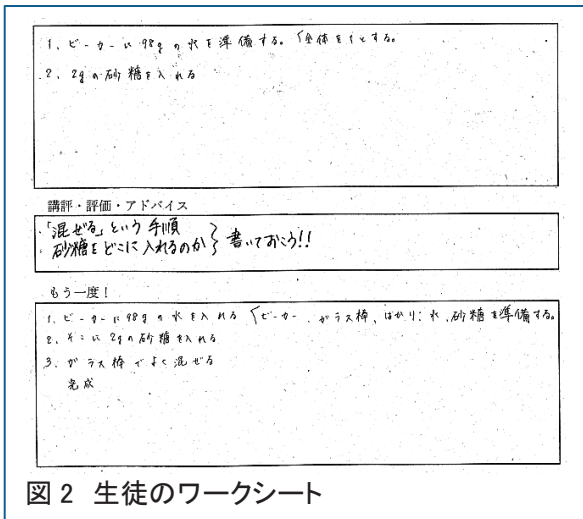 1、ビーカーに98gの水を準備する。「全体を1とする。
2、2gの砂糖を入れる
講評・評価・アドバイス
・「混ぜる」という手順
・砂糖をどこに入れるのか } 書いておこう!!
もう一度！
1、ビーカーに98gの水を入れる「ビーカー、ガラス棒、はかり、水、砂糖を準備する。
2、そこに2gの砂糖を入れる
3、ガラス棒でよく混ぜる
完成
図2 生徒のワークシート